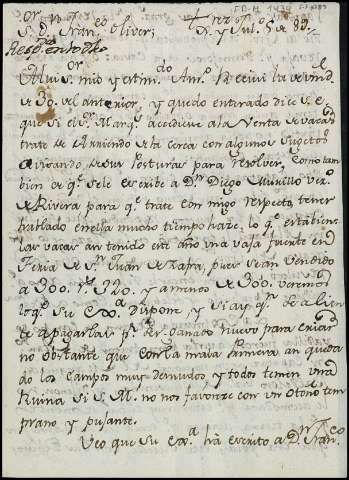 Sor. Dn. Franco. Oliver;
y Julio 8 de 89,,
Respondida
Mui Sor. mio y estimdo. Amo. Recevi la de Vmd.
de 30. del anterior, y quedo enterado dice S. E.
que si el Sor. Marqs. accediere a la Venta de vacas
trate de Arriendo de la cerca con algunos sugetos
avisando de sus Posturas para resolver, como tam
bien qe. se le escribe a Dn. Diego Murillo vezo.
de Rivera para qe. trate con migo respecto, tener
hablado en ella mucho tiempo haze, lo qe. esta bien:
Las vacas an tenido este año una vaja fuerte en la
Feria de Sn. Juan de Zafra, pues se an vendido
a 300. rs. 320. y a menos de 300. veremos
lo qe. su Exa. Dispone, y si ay qn. de a bien
de apagarlas pr. ser Ganado nuevo para criar
no obstante que con la mala Primavera an queda
do los campos muy desnudos y todos temen una
Ruina si S. M. no nos favoreze con un otoño tem
prano y pujante.
Veo que Su Exa. hà escrito a Dn. Franco.